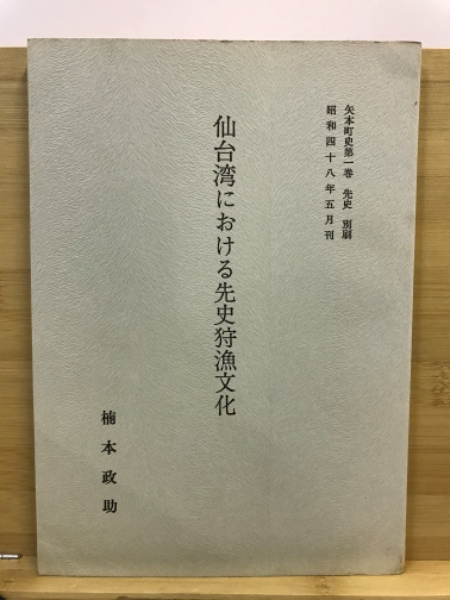 矢本町史第一巻 先史 別刷
昭和四十八年五月刊
仙台湾における先史狩漁文化
楠本政助